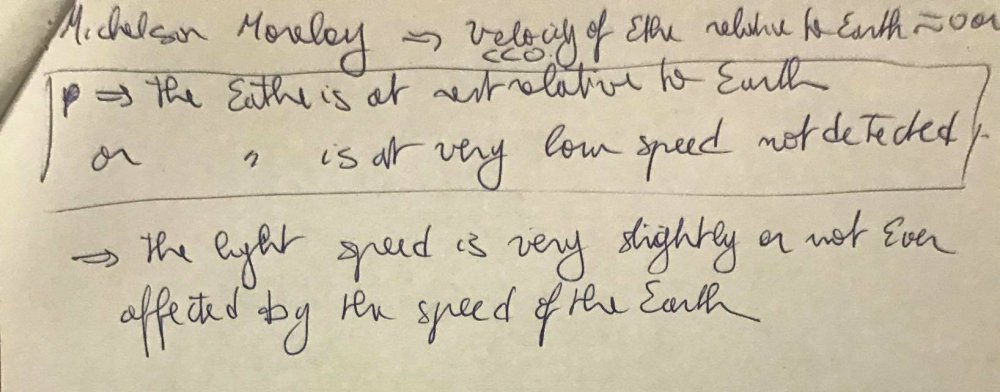 Michelson Moreley => velocity of Ethe relative to Earth ≈ 0 or
<<0.
p => the Eathe is at rest relative to Earth
or " is at very low speed not detected.
=> the light speed is very slightly or not Even
affected by the speed of the Earth